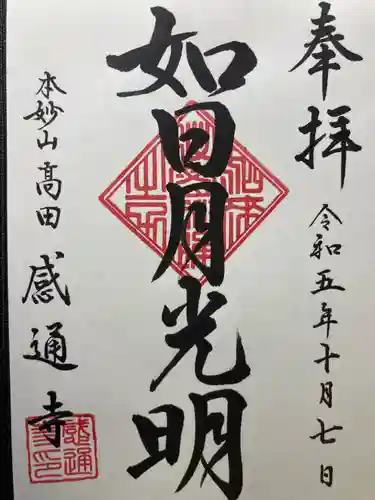 奉拝
令和五年十月七日
如日月光明
本妙山高田
感通寺